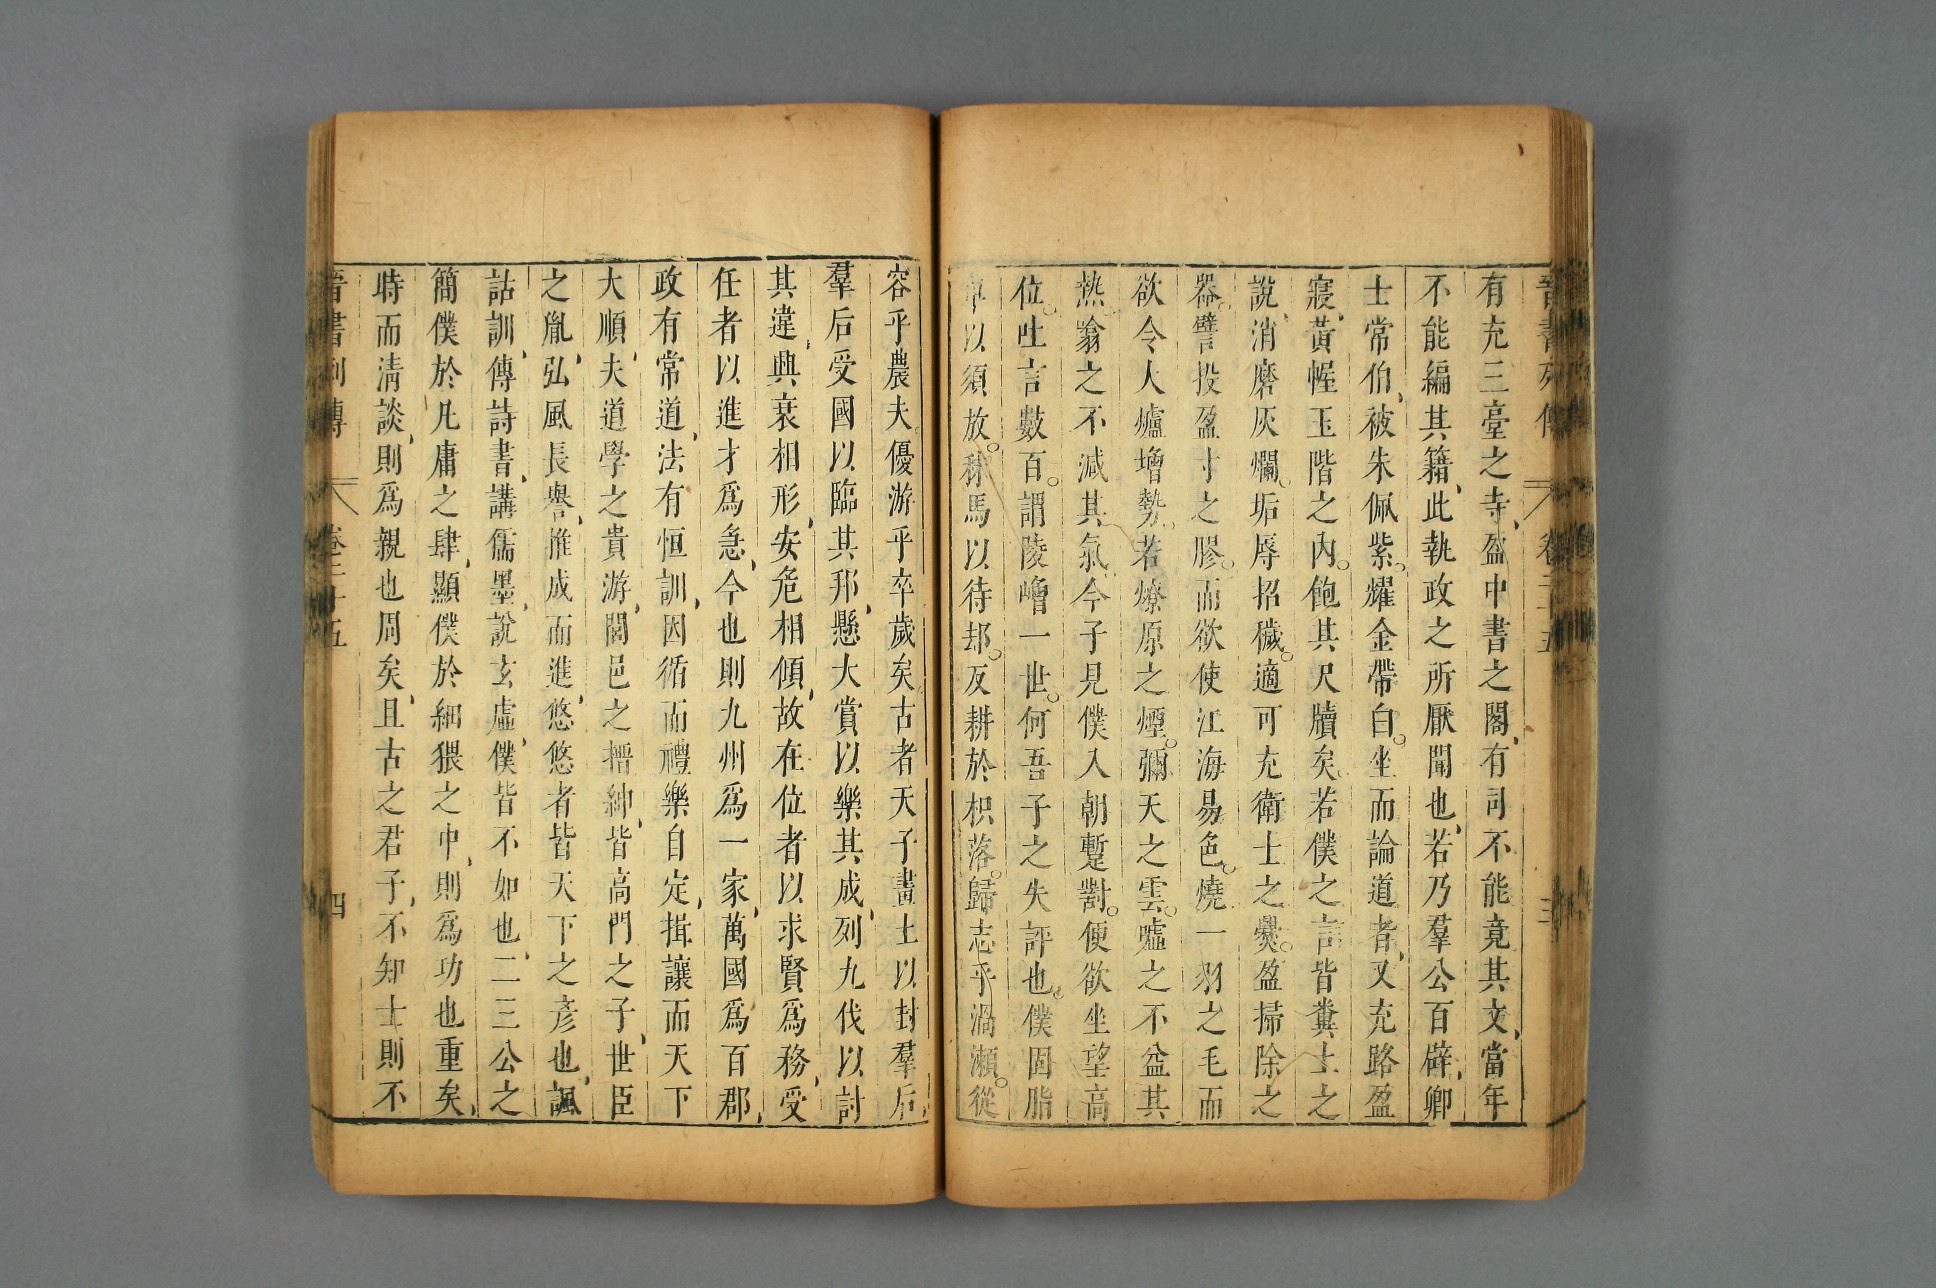 晉書列傳 卷二十五 三
有充三臺之寺盈中書之閣有司不能竟其文當年
不能編其籍此執政之所厭聞也若乃羣公百辟卿
士常伯被朱佩紫。耀金帶白。坐而論道者又充路盈
寢黃幄玉階之內。飽其尺牘矣。若僕之言皆糞土之
說消磨灰爛。垢辱招穢。適可充衛士之爨。盈掃除之
器。譬投盈寸之膠。而欲使江海易色。燒一羽之毛而
欲令大爐增勢。若燎原之煙。彌天之雲。噓之不益其
熱。翕之不減其氣。今子見僕入朝暫對。便欲坐望高
位。吐言數百。謂陵嶒一世。何吾子之失評也。僕固脂
車以須放。秣馬以待却。反耕於枳落。歸志乎渦瀨。從
容乎農夫優游乎卒歲矣。古者天子畫土以封羣后
羣后受國以臨其邦懸大賞以樂其成列九伐以討
其違興衰相形安危相傾故在位者以求賢爲務受
任者以進才爲急今也則九州爲一家萬國爲百郡
政有常道法有恒訓因循而禮樂自定揖讓而天下
大順夫道學之貴游閭邑之搢紳皆高門之子世臣
之胤弘風長譽推成而進悠悠者皆天下之彥也諷
詁訓傳詩書講儒墨說玄虛僕皆不如也二三公之
簡僕於凡庸之肆顯僕於細猥之中則爲功也重矣
時而清談則爲親也周矣且古之君子不知士則不
晉書列傳 卷二十五 四